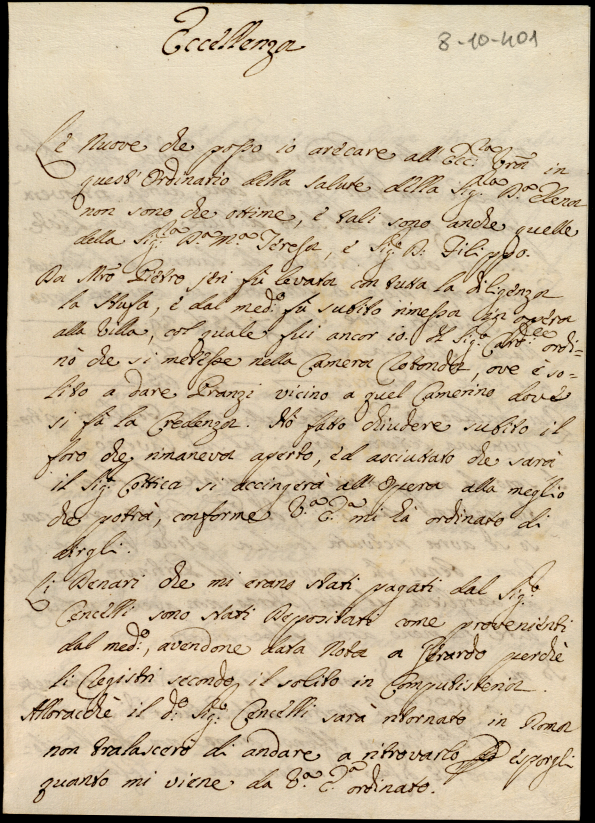 8-10-401
Eccellenza
Le Nuove che posso io arecare all' Ecc.za Vra in
quest' Ordinario della salute della Sig.ra D.a Elena
non sono che ottime, e tali sono anche quelle
della Sig.a D.a M.a Teresa, e Sig.e D. Filippo.
Da Mro Pietro jeri fù levata con tutta la diligenza
la Stufa, e dal med.o fù subito rimessa in opera
alla Villa, col quale fui ancor io. Il Sig.e Card.le ordi-
nò che si mettesse nella Camera Rotonda, ove è so-
lito a dare Pranzi vicino a quel Camerino dove
si fà la Credenza. Hò fatto chiudere subito il
foro che rimaneva aperto, ed asciuttato che sarà
il Sig.e Cottica si accingerà all' Opera alla meglio
che potrà, conforme V.a E.a mi hà ordinato di
dirgli.
Li Denari che mi erano stati pagati dal Sig.e
Cencelli sono stati Depositati come provenienti
dal med.o, avendone data Nota a Gerardo perchè
li Registri secondo il solito in Computisteria.
Alloracchè il d.o Sig.e Cencelli sarà ritornato in Roma
non tralascerò di andare a ritrovarlo esporgli
quanto mi viene da V.a E.a ordinato.